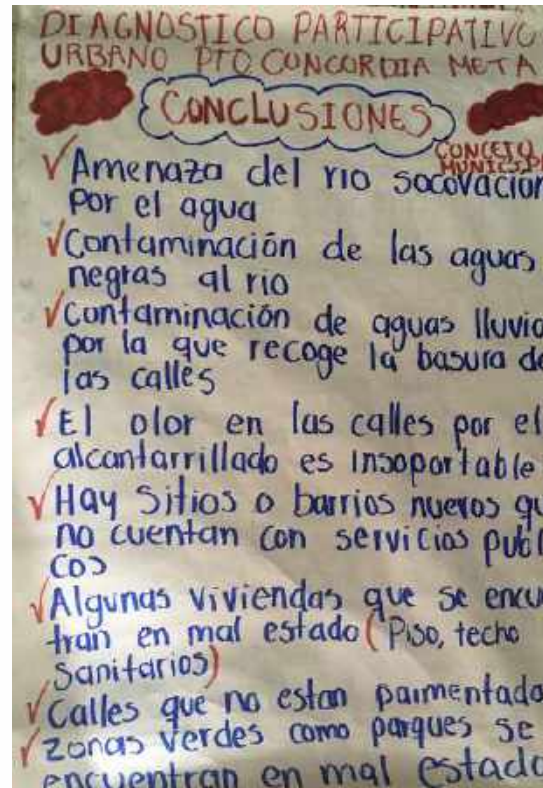 DIAGNOSTICO PARTICIPATIVO
URBANO PTO CONCORDIA META
CONCLUSIONES
CONCEJO
MUNICIP
√ Amenaza del rio socovacion
por el agua
√ Contaminación de las aguas
negras al rio
√ Contaminación de aguas lluvia
por la que recoge la basura de
las calles
√ El olor en las calles por el
alcantarrillado es insoportable
√ Hay sitios o barrios nuevos qu
no cuentan con servicios publ
cos
√ Algunas viviendas que se encu
tran en mal estado (Piso, techo
Sanitarios)
√ Calles que no estan paimentada
√ zonas verdes como parques se
encuentran en mal estado